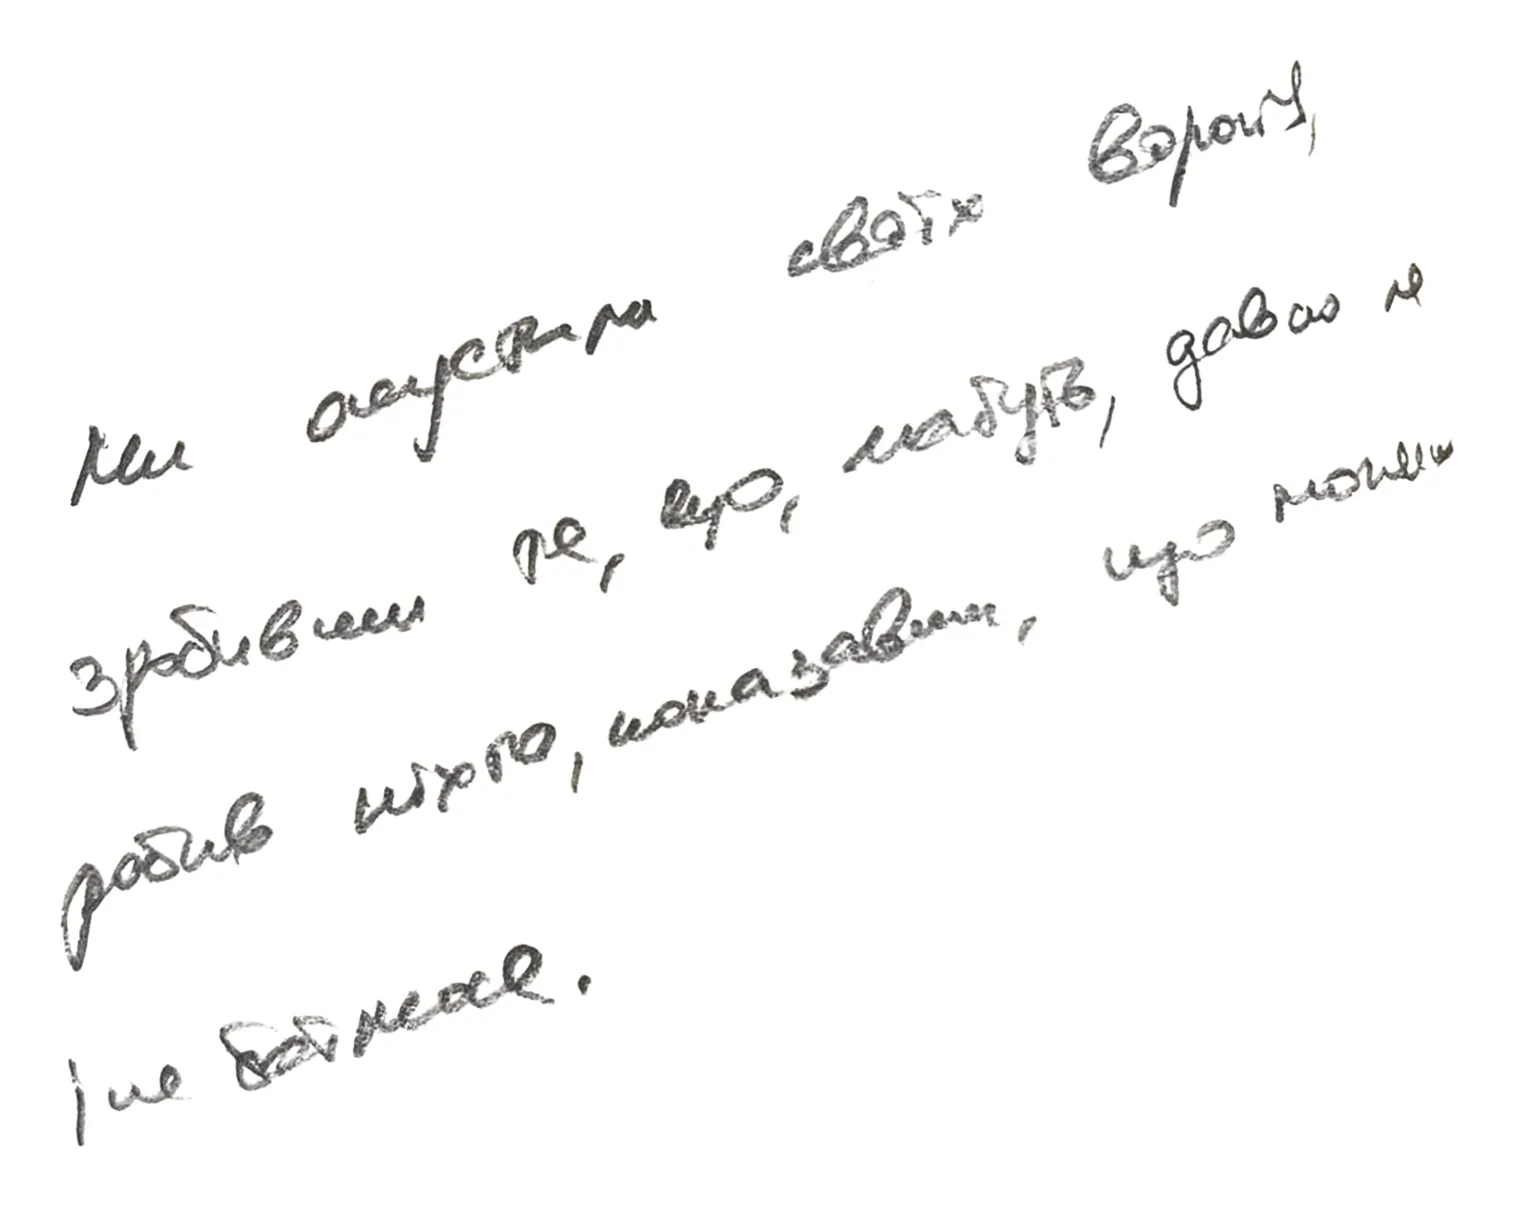 Ми опустили своїх ворогів,
зробивши те, що, мабуть, давно не
робив ніхто, показавши, що можемо
і не боїмося.